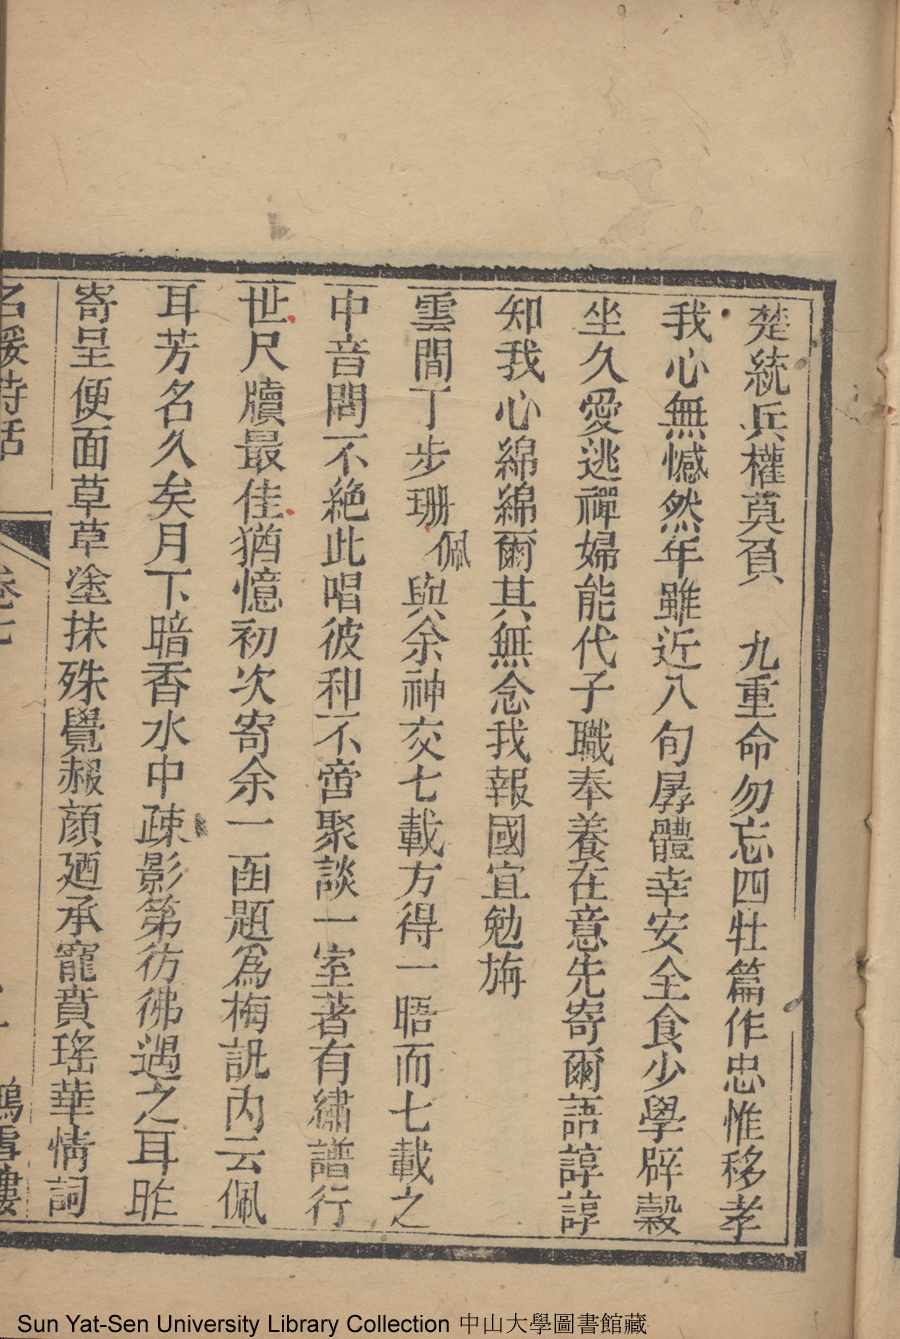 楚統兵權莫負　九重命勿忘四牡篇作忠惟移孝
我心無憾然年雖近八旬孱體幸安全食少學辟穀
坐久愛逃禪婦能代子職奉養在意先寄爾語諄諄
知我心綿綿爾其無念我報國宜勉旃
雲間丁步珊佩與余神交七載方得一晤而七載之
中音問不絶此唱彼和不啻聚談一室著有繡譜行
世尺牘最佳猶憶初次寄余一函題爲梅訊内云佩
耳芳名久矣月下暗香水中疎影第彷彿遇之耳昨
寄呈便面草草塗抹殊覺赧顔廼承寵賁瑤華情詞
名媛詩話　卷七　鴻雪樓
Sun Yat-Sen University Library Collection 中山大學圖書館藏